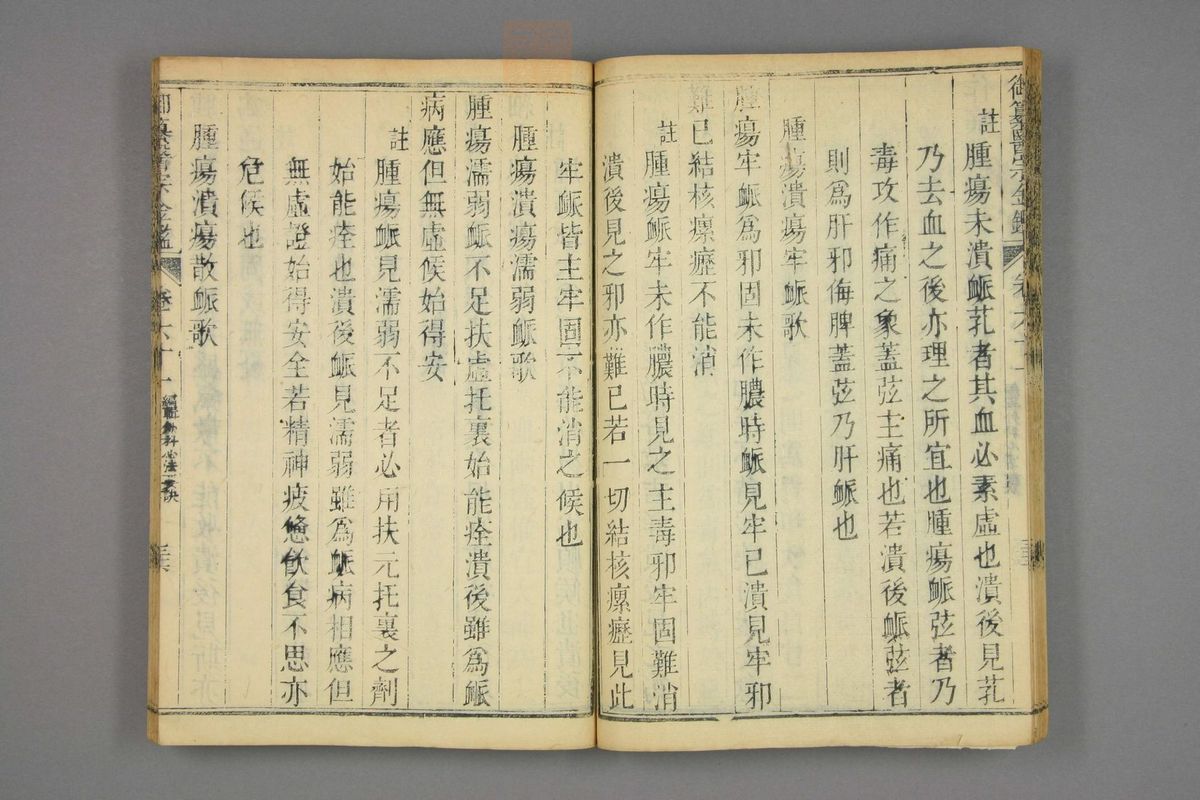 御纂醫宗金鑑 卷六十一
註腫瘍未潰脈芤者其血必素虛也潰後見芤
乃去血之後亦理之所宜也腫瘍脈弦者乃
毒攻作痛之象蓋弦主痛也若潰後脈弦者
則爲肝邪侮脾蓋弦乃肝脈也
腫瘍潰瘍牢脈歌
腫瘍牢脈爲邪固未作膿時脈見牢已潰見牢邪
難已結核瘰癧不能消
註腫瘍脈牢未作膿時見之主毒邪牢固難消
潰後見之邪亦難已若一切結核瘰癧見此
牢脈皆主牢固不能消之候也
腫瘍潰瘍濡弱脈歌
腫瘍濡弱脈不足扶虛托裏始能痊潰後雖爲脈
病應但無虛候始得安
註腫瘍脈見濡弱不足者必用扶元托裏之劑
始能痊也潰後脈見濡弱雖爲脈病相應但
無虛證始得安全若精神疲憊飲食不思亦
危候也
腫瘍潰瘍散脈歌
御纂醫宗金鑑 卷六十一 編輯外科心法要訣